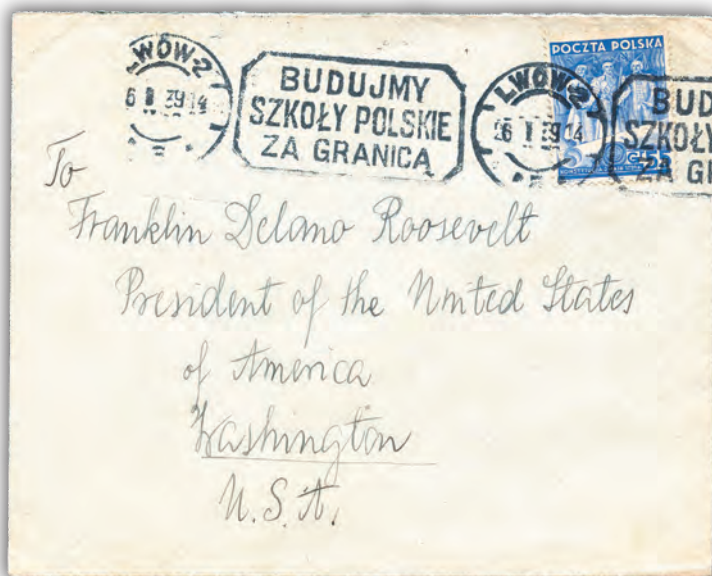 LWÓW 2
BUDUJMY
SZKOŁY POLSKIE
ZA GRANICĄ
LWÓW 2
POCZTA POLSKA
BUD
SZKOŁY
ZA GR
To
Franklin Delano Roosevelt
President of the United States
of America
Washington
U.S.A.